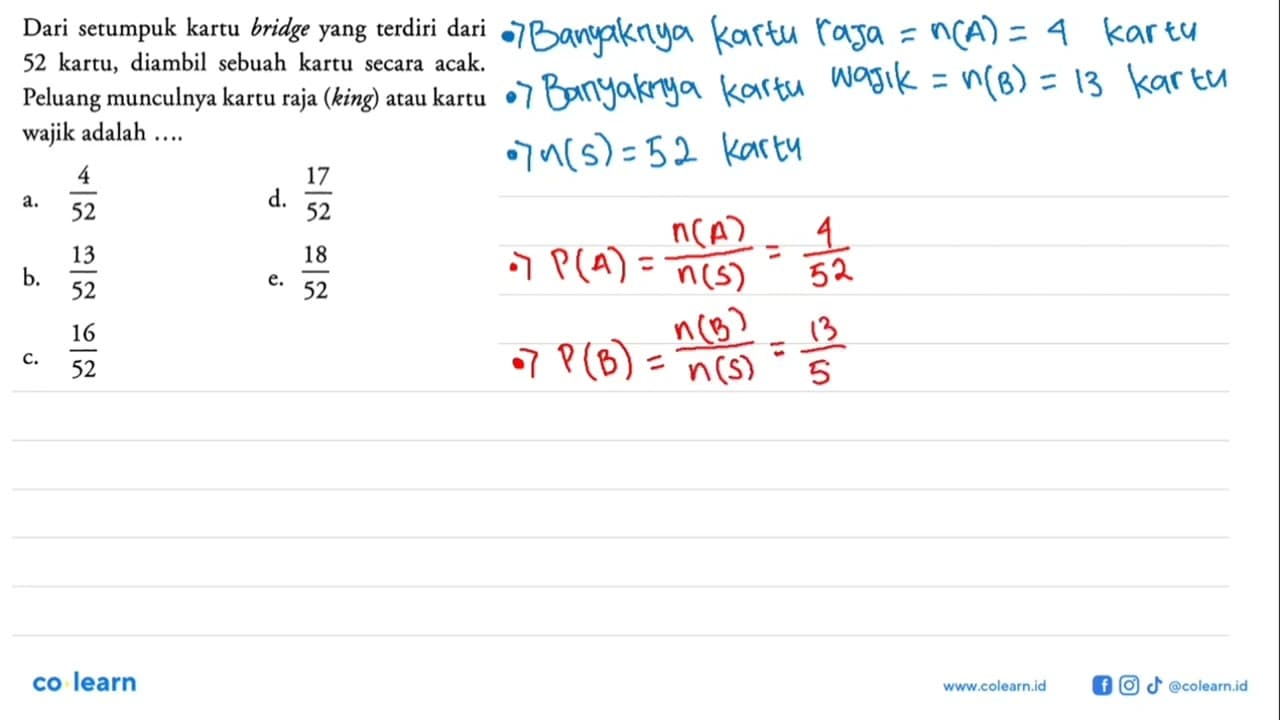 Dari setumpuk kartu bridge yang terdiri dari
52 kartu, diambil sebuah kartu secara acak.
Peluang munculnya kartu raja (king) atau kartu
wajik adalah ....
a. 4/52
d. 17/52
b. 13/52
e. 18/52
c. 16/52
•→ Banyaknya kartu raja = n(A) = 4 kartu
•→ Banyaknya kartu wajik = n(B) = 13 kartu
•→ n(S) = 52 kartu
•→ P(A) = n(A)/n(S) = 4/52
•→ P(B) = n(B)/n(S) = 13/5
co learn
www.colearn.id
@colearn.id